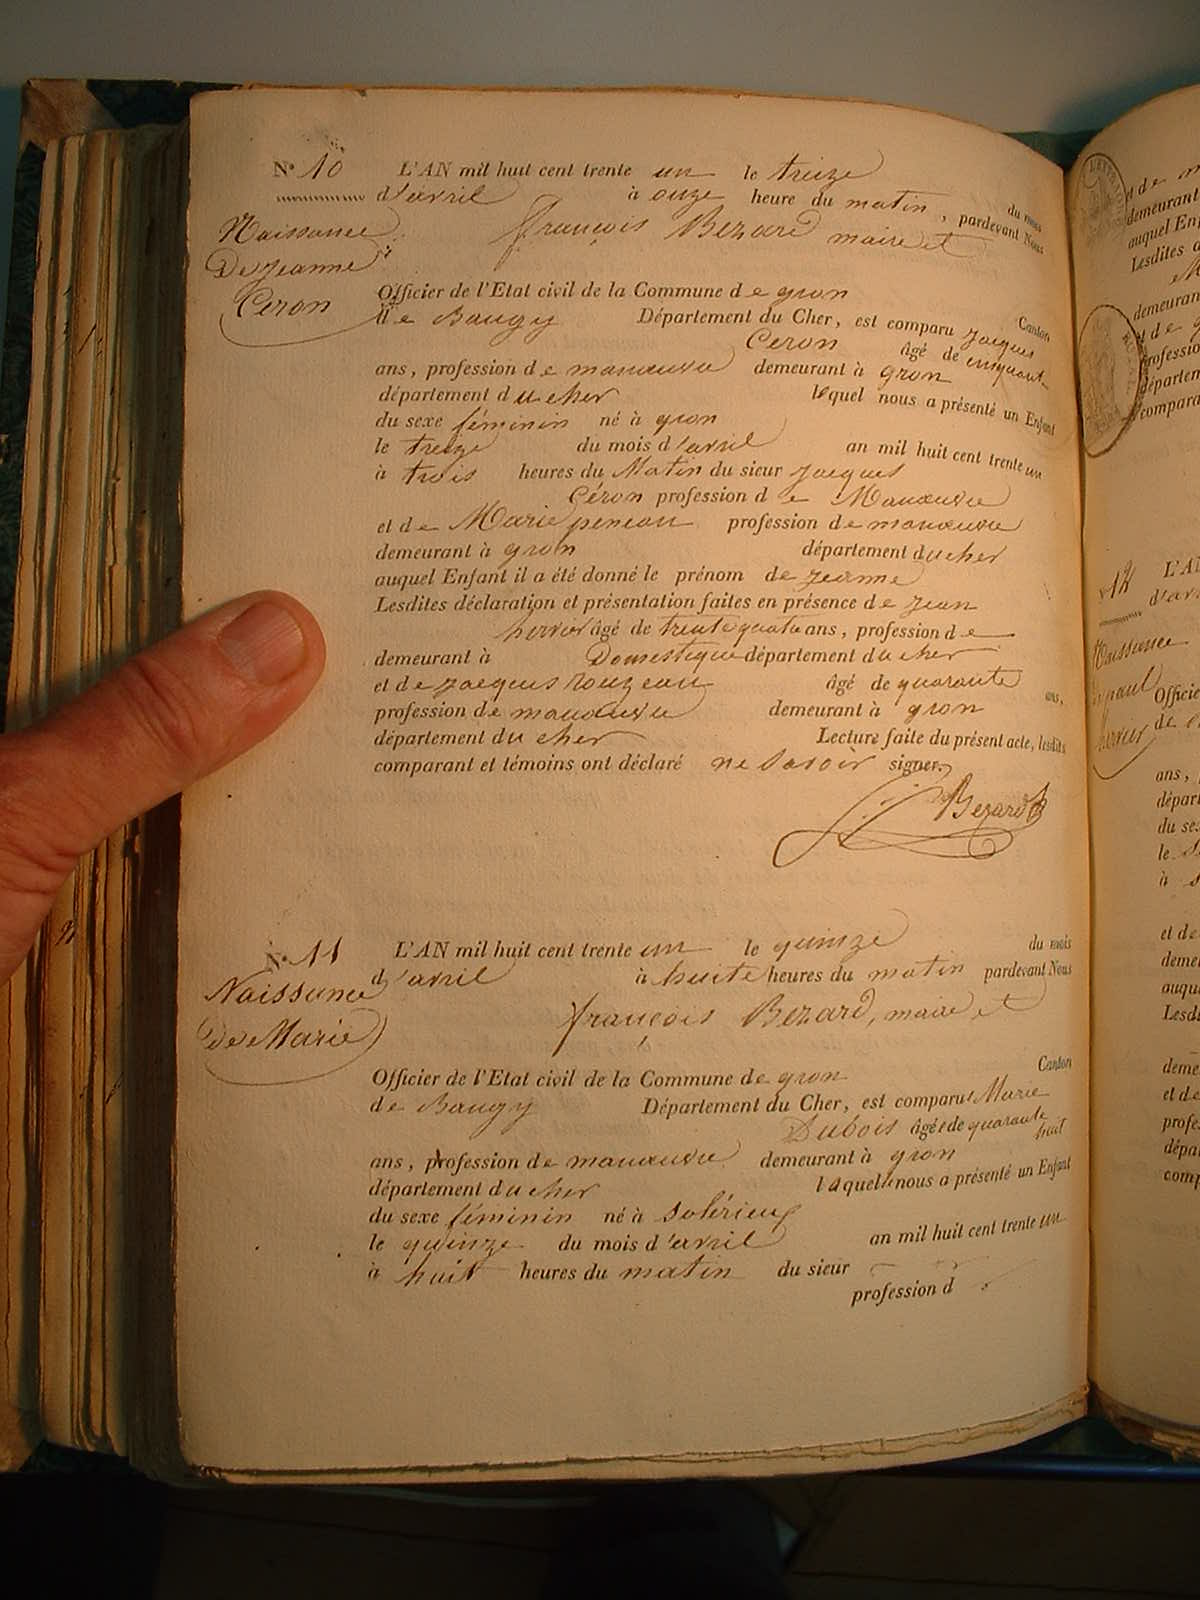 N.º 10
Naissance
De Jeanne
Ceron
L'AN mil huit cent trente un le treize du mois
d'avril à onze heure du matin, pardevant Nous
françois Bezard maire et
Officier de l'Etat civil de la Commune de gron Canton
de Baugy Département du Cher, est comparu Jacques
Ceron âgé de cinquante
ans, profession de manœuvre demeurant à gron
département du cher lequel nous a présenté un Enfant
du sexe féminin né à gron
le treize du mois d'avril an mil huit cent trente un
à trois heures du Matin du sieur Jacques
Céron profession de Manœuvre
et de Marie peneau profession de manœuvre
demeurant à gron département du cher
auquel Enfant il a été donné le prénom de jeanne
Lesdites déclaration et présentation faites en présence de jean
hervier âgé de trente quatre ans, profession de
demeurant à Domestique département du cher
et de jacques rouzeau âgé de quarante ans,
profession de manœuvre demeurant à gron
département du cher Lecture faite du présent acte, lesdits
comparant et témoins ont déclaré ne Savoir signer.
Bezard
N.º 11
Naissance
de Marie
L'AN mil huit cent trente un le quinze du mois
d'avril à huite heures du matin pardevant Nous
françois Bezard, maire et
Officier de l'Etat civil de la Commune de gron Canton
de Baugy Département du Cher, est comparue Marie
Dubois âgée de quarante
huit
ans, profession de manœuvre demeurant à gron
département du cher laquelle nous a présenté un Enfant
du sexe féminin né à solérieux
le quinze du mois d'avril an mil huit cent trente un
à huit heures du matin du sieur
profession d